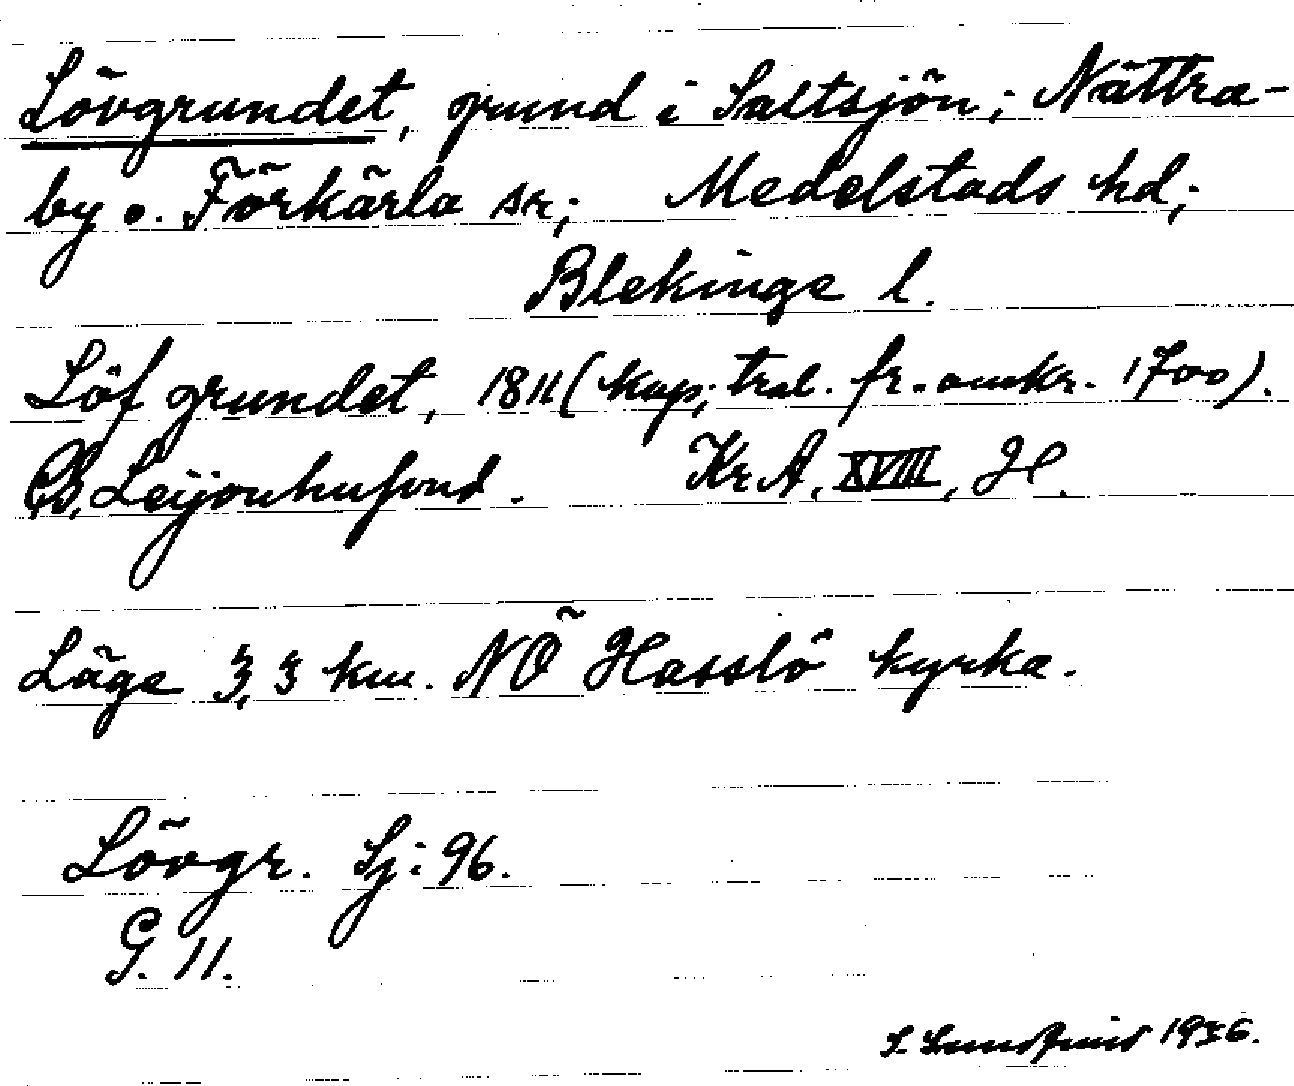 Lövgrundet, grund i Saltsjön; Nättra-
by o. Förkärla sn; Medelstads hd;
Blekinge l.
Löf grundet, 1811 (kop; tral. fr. omkr. 1700).
CB. Leijonhufvud. KrA, XVIII, H.
Läge 3,3 km. NÖ Hasslö kyrka.
Lövgr. Sj: 96.
G. 11.